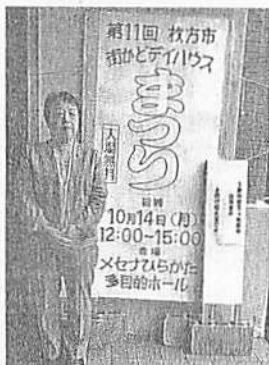 第11回 枚方市
街かどデイハウス
まつり
入場無料
日時
10月14日(月)
12:00~15:00
会場
メセナひらかた
多目的ホール